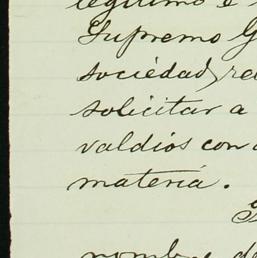 legítimo é
Supremo G
sociedad, re
solicitar a
valdíos con
materia.
nombre de